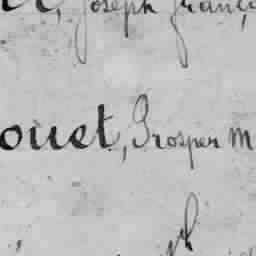 Joseph Franç
ouet, Prosper M